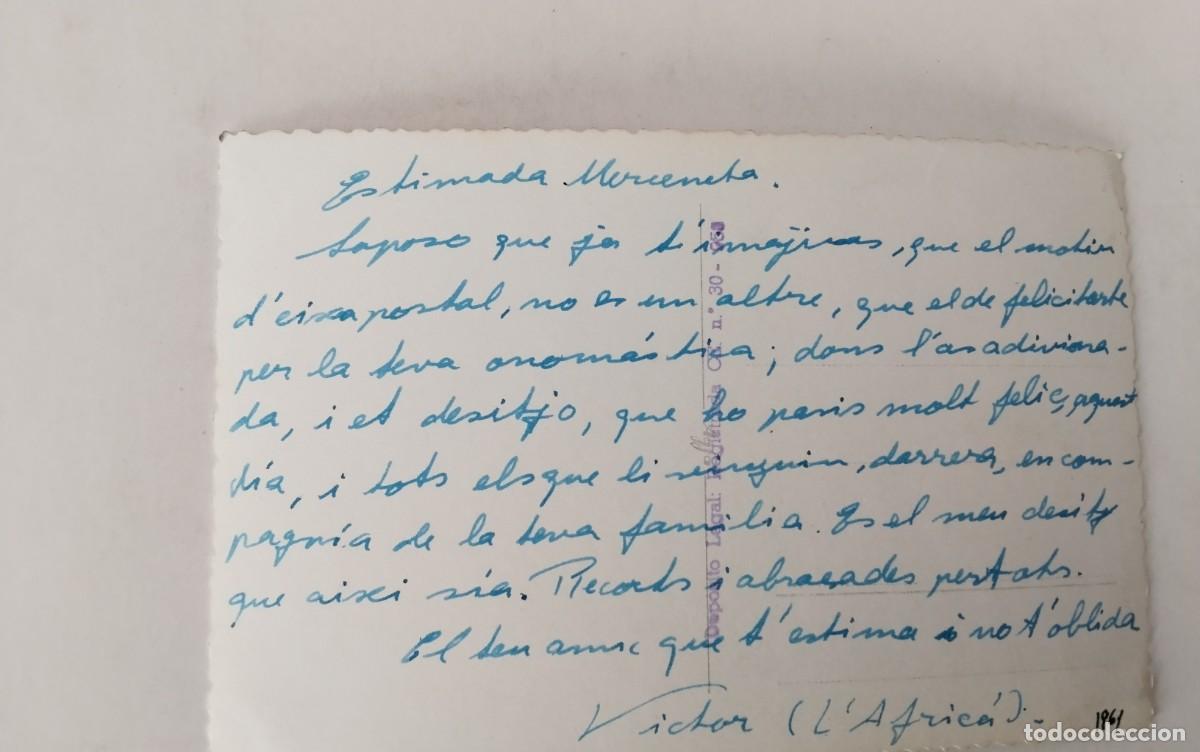 Estimada Merceneta.
Suposo que ja t'imajinas, que el motiu
d'eixa postal, no es un altre, que el de felicitarte
per la teva onomástica; dons l'as adivina-
da, i et desitjo, que ho pasis molt felic, aquest
día, i tots els que li vinguin, darrera, en com-
pagnía de la teva familia. Es el meu desitj
que aixi sía. Recorts i abraçades per tots.
El teu amic que t'estima i no t'oblida
Victor (L'Africá).-
1961
Depósito Legal: n.° 30-
todocoleccion